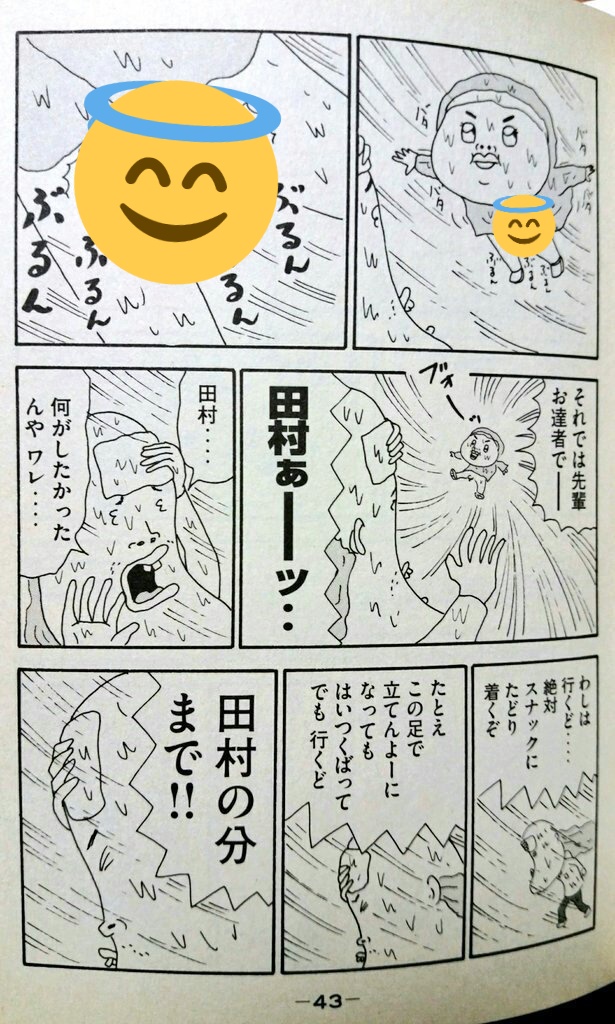 バタ
バタ
バタ
バタ
ぶるん
ぶるん
ぶるん
ぶるん
ぶるん
るん
ぶるん
それでは先輩
お達者で――
ブォー
田村ぁーーッ‥
田村‥‥
何がしたかった
んや ワレ‥‥
わしは
行くど‥‥
絶対
スナックに
たどり
着くぞ
たとえ
この足で
立てんよーに
なっても
はいつくばって
でも 行くど
田村の分
まで!!
―43―